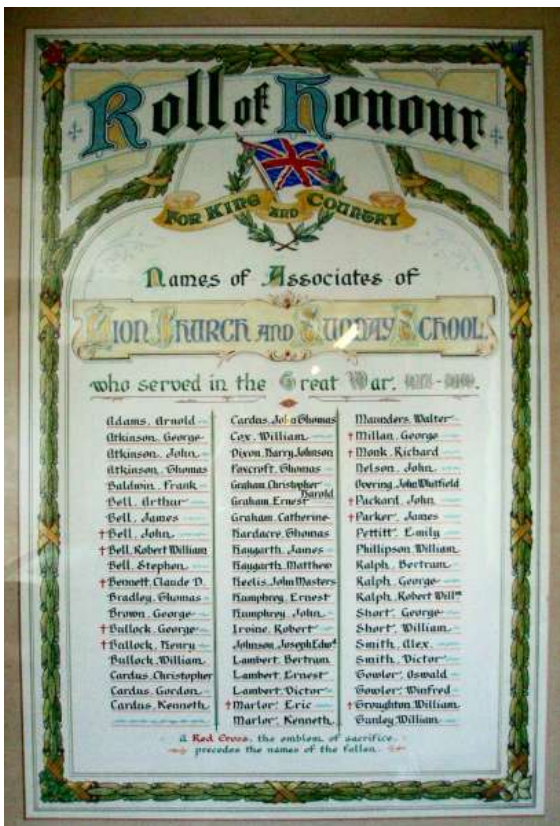 Roll of Honour
FOR KING AND COUNTRY
Names of Associates of
Zion Church and Sunday School.
who served in the Great War,
Adams, Arnold
Atkinson, George
Atkinson, John
Atkinson, Thomas
Baldwin, Frank
Bell, Arthur
Bell, James
† Bell, John
† Bell, Robert William
Bell, Stephen
† Bennett, Claude D.
Bradley, Thomas
Brown, George
† Bullock, George
† Bullock, Henry
Bullock, William
Cardus, Christopher
Cardus, Gordon
Cardus, Kenneth
Cardus, John Thomas
Cox, William
Dixon, Harry Johnson
Foxcroft, Thomas
Graham, Christopher
Graham, Ernest Harold
Graham, Catherine
Hardacre, Thomas
Haygarth, James
Haygarth, Matthew
Heelis, John Masters
Humphrey, Ernest
Humphrey, John
Irvine, Robert
Johnson, Joseph Edwd.
Lambert, Bertram
Lambert, Ernest
Lambert, Victor
† Marlor, Eric
Marlor, Kenneth
Maunders, Walter
† Millan, George
† Monk, Richard
Nelson, John
Overing, John Whitfield
† Packard, John
† Parker, James
Pettitt, Emily
Phillipson, William
Ralph, Bertram
Ralph, George
Ralph, Robert Willm
Short, George
Short, William
Smith, Alex.
Smith, Victor
Towler, Oswald
Towler, Winfred
† Troughton, William
William
A Red Cross, the emblem of sacrifice,
precedes the names of the fallen.